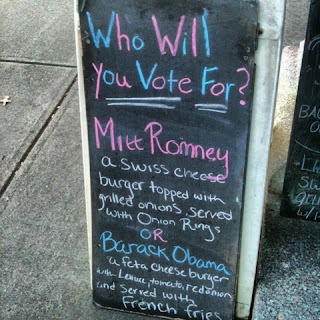 Who Will
You Vote For?
Mitt Romney
a swiss cheese
burger topped with
grilled onions served
with Onion Rings
OR
Barack Obama
a feta cheeseburger
with Lettuce, tomato, red onion
and served with
French fries